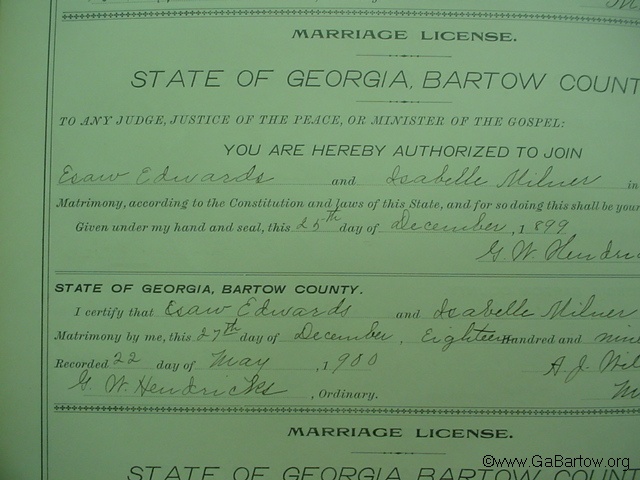 MARRIAGE LICENSE.
STATE OF GEORGIA, BARTOW COUNT
TO ANY JUDGE, JUSTICE OF THE PEACE, OR MINISTER OF THE GOSPEL:
YOU ARE HEREBY AUTHORIZED TO JOIN
Esaw Edwards and Isabelle Milner in
Matrimony, according to the Constitution and laws of this State, and for so doing this shall be your
Given under my hand and seal, this 25th day of December, 1899
G. W. Hendric
STATE OF GEORGIA, BARTOW COUNTY.
I certify that Esaw Edwards and Isabelle Milner
Matrimony by me, this 27th day of December, Eighteen Hundred and nine
Recorded 22 day of May, 1900 A. J. Wil
G. W. Hendricks, Ordinary. M
MARRIAGE LICENSE.
STATE OF GEORGIA, BARTOW COUNT
©www.GaBartow.org